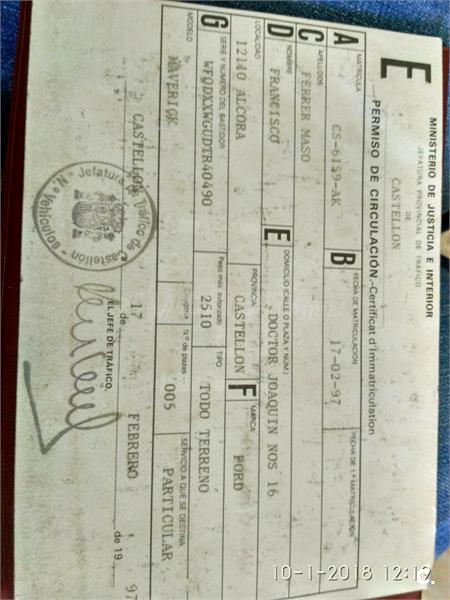 E
MINISTERIO DE JUSTICIA E INTERIOR
JEFATURA PROVINCIAL DE TRÁFICO
DE
CASTELLON
PERMISO DE CIRCULACIÓN.-Certificat d'Immatriculation
A MATRÍCULA CS-6159-AK
B FECHA DE MATRICULACIÓN 17-02-97
FECHA DE 1.ª MATRICULACIÓN
C APELLIDOS FERRER MASO
D NOMBRE FRANCISCO
E DOMICILIO (CALLE O PLAZA Y NUM.) DOCTOR JOAQUIN NOS 16
LOCALIDAD 12140 ALCORA
PROVINCIA CASTELLON
F MARCA FORD
G SERIE Y NUMERO DEL BASTIDOR WF0DXXWGUDTR40490
Peso máx. autorizado 2510
TIPO TODO TERRENO
MAVERICK
Categoría
N.º de plazas 005
SERVICIO A QUE SE DESTINA PARTICULAR
CASTELLON 17 de FEBRERO de 19 97
EL JEFE DE TRÁFICO,
Jefatura de Tráfico de Castellón
N.º Vehículos
10-1-2018 12:12